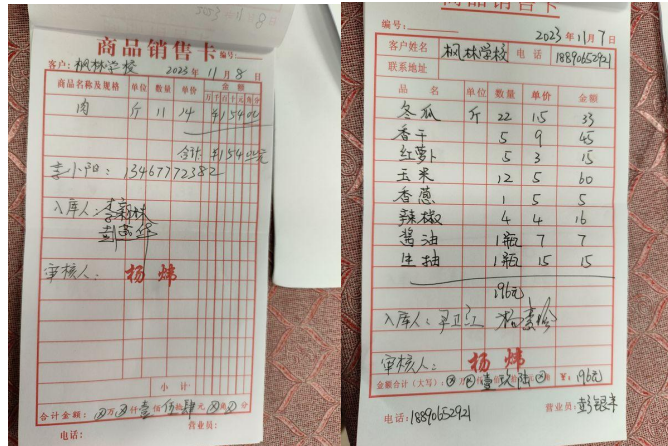 商品销售卡 编号:
客户: 枫林学校 2023年11月8日
商品名称及规格 单位 数量 单价 金额
万 千 百 十 元 角 分
肉 斤 11 14 ¥154.00
合计: ¥154.00元
李小阳: 13467772382
入库人: 李新林
审核人: 杨炜
小计
合计金额: ⊗万⊗仟壹佰伍拾肆元⊗角⊗分
电话: 营业员:
商品销售卡
编号: 2023年11月7日
客户姓名 枫林学校 电话 18890652921
联系地址
品名 单位 数量 单价 金额
冬瓜 斤 22 1.5 33
香干 5 9 45
红萝卜 5 3 15
玉米 12 5 60
香葱 1 5 5
辣椒 4 4 16
酱油 1瓶 7 7
生抽 1瓶 15 15
196元
入库人:
审核人: 杨炜
金额合计(大写): ⊗万 壹 玖 陆 ⊗角 ¥: 196元
电话: 18890652921 营业员: 彭银来